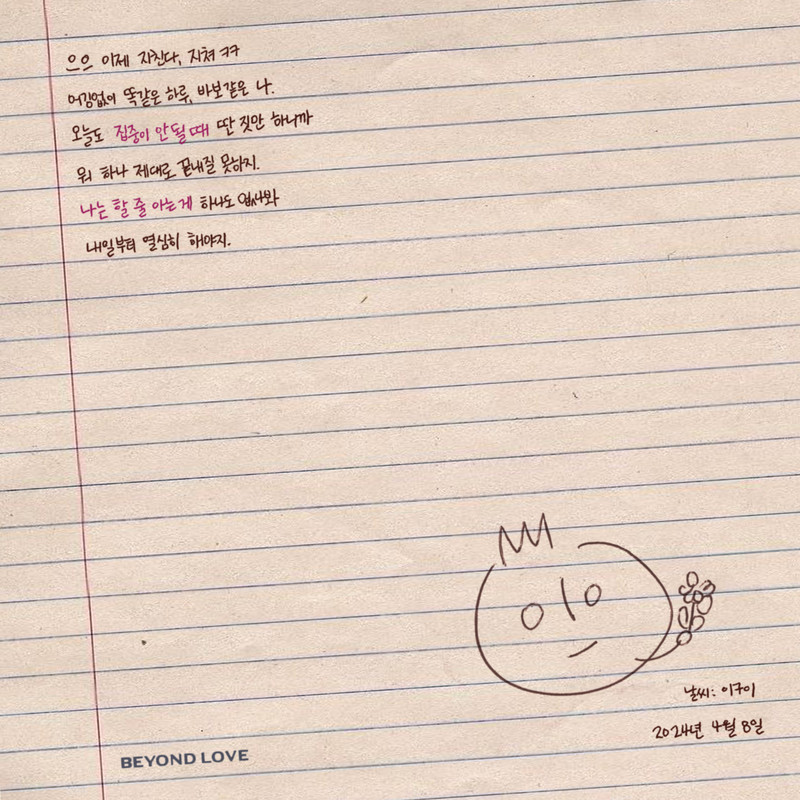 으으 이제 지친다, 지쳐 ㅋㅋ
어김없이 똑같은 하루, 바보같은 나.
오늘도 집중이 안될 때 딴 짓만 하니까
뭐 하나 제대로 끝내질 못하지.
나는 할 줄 아는게 하나도 없나봐
내일부터 열심히 해야지.
날씨: 이구이
2024년 4월 8일
BEYOND LOVE